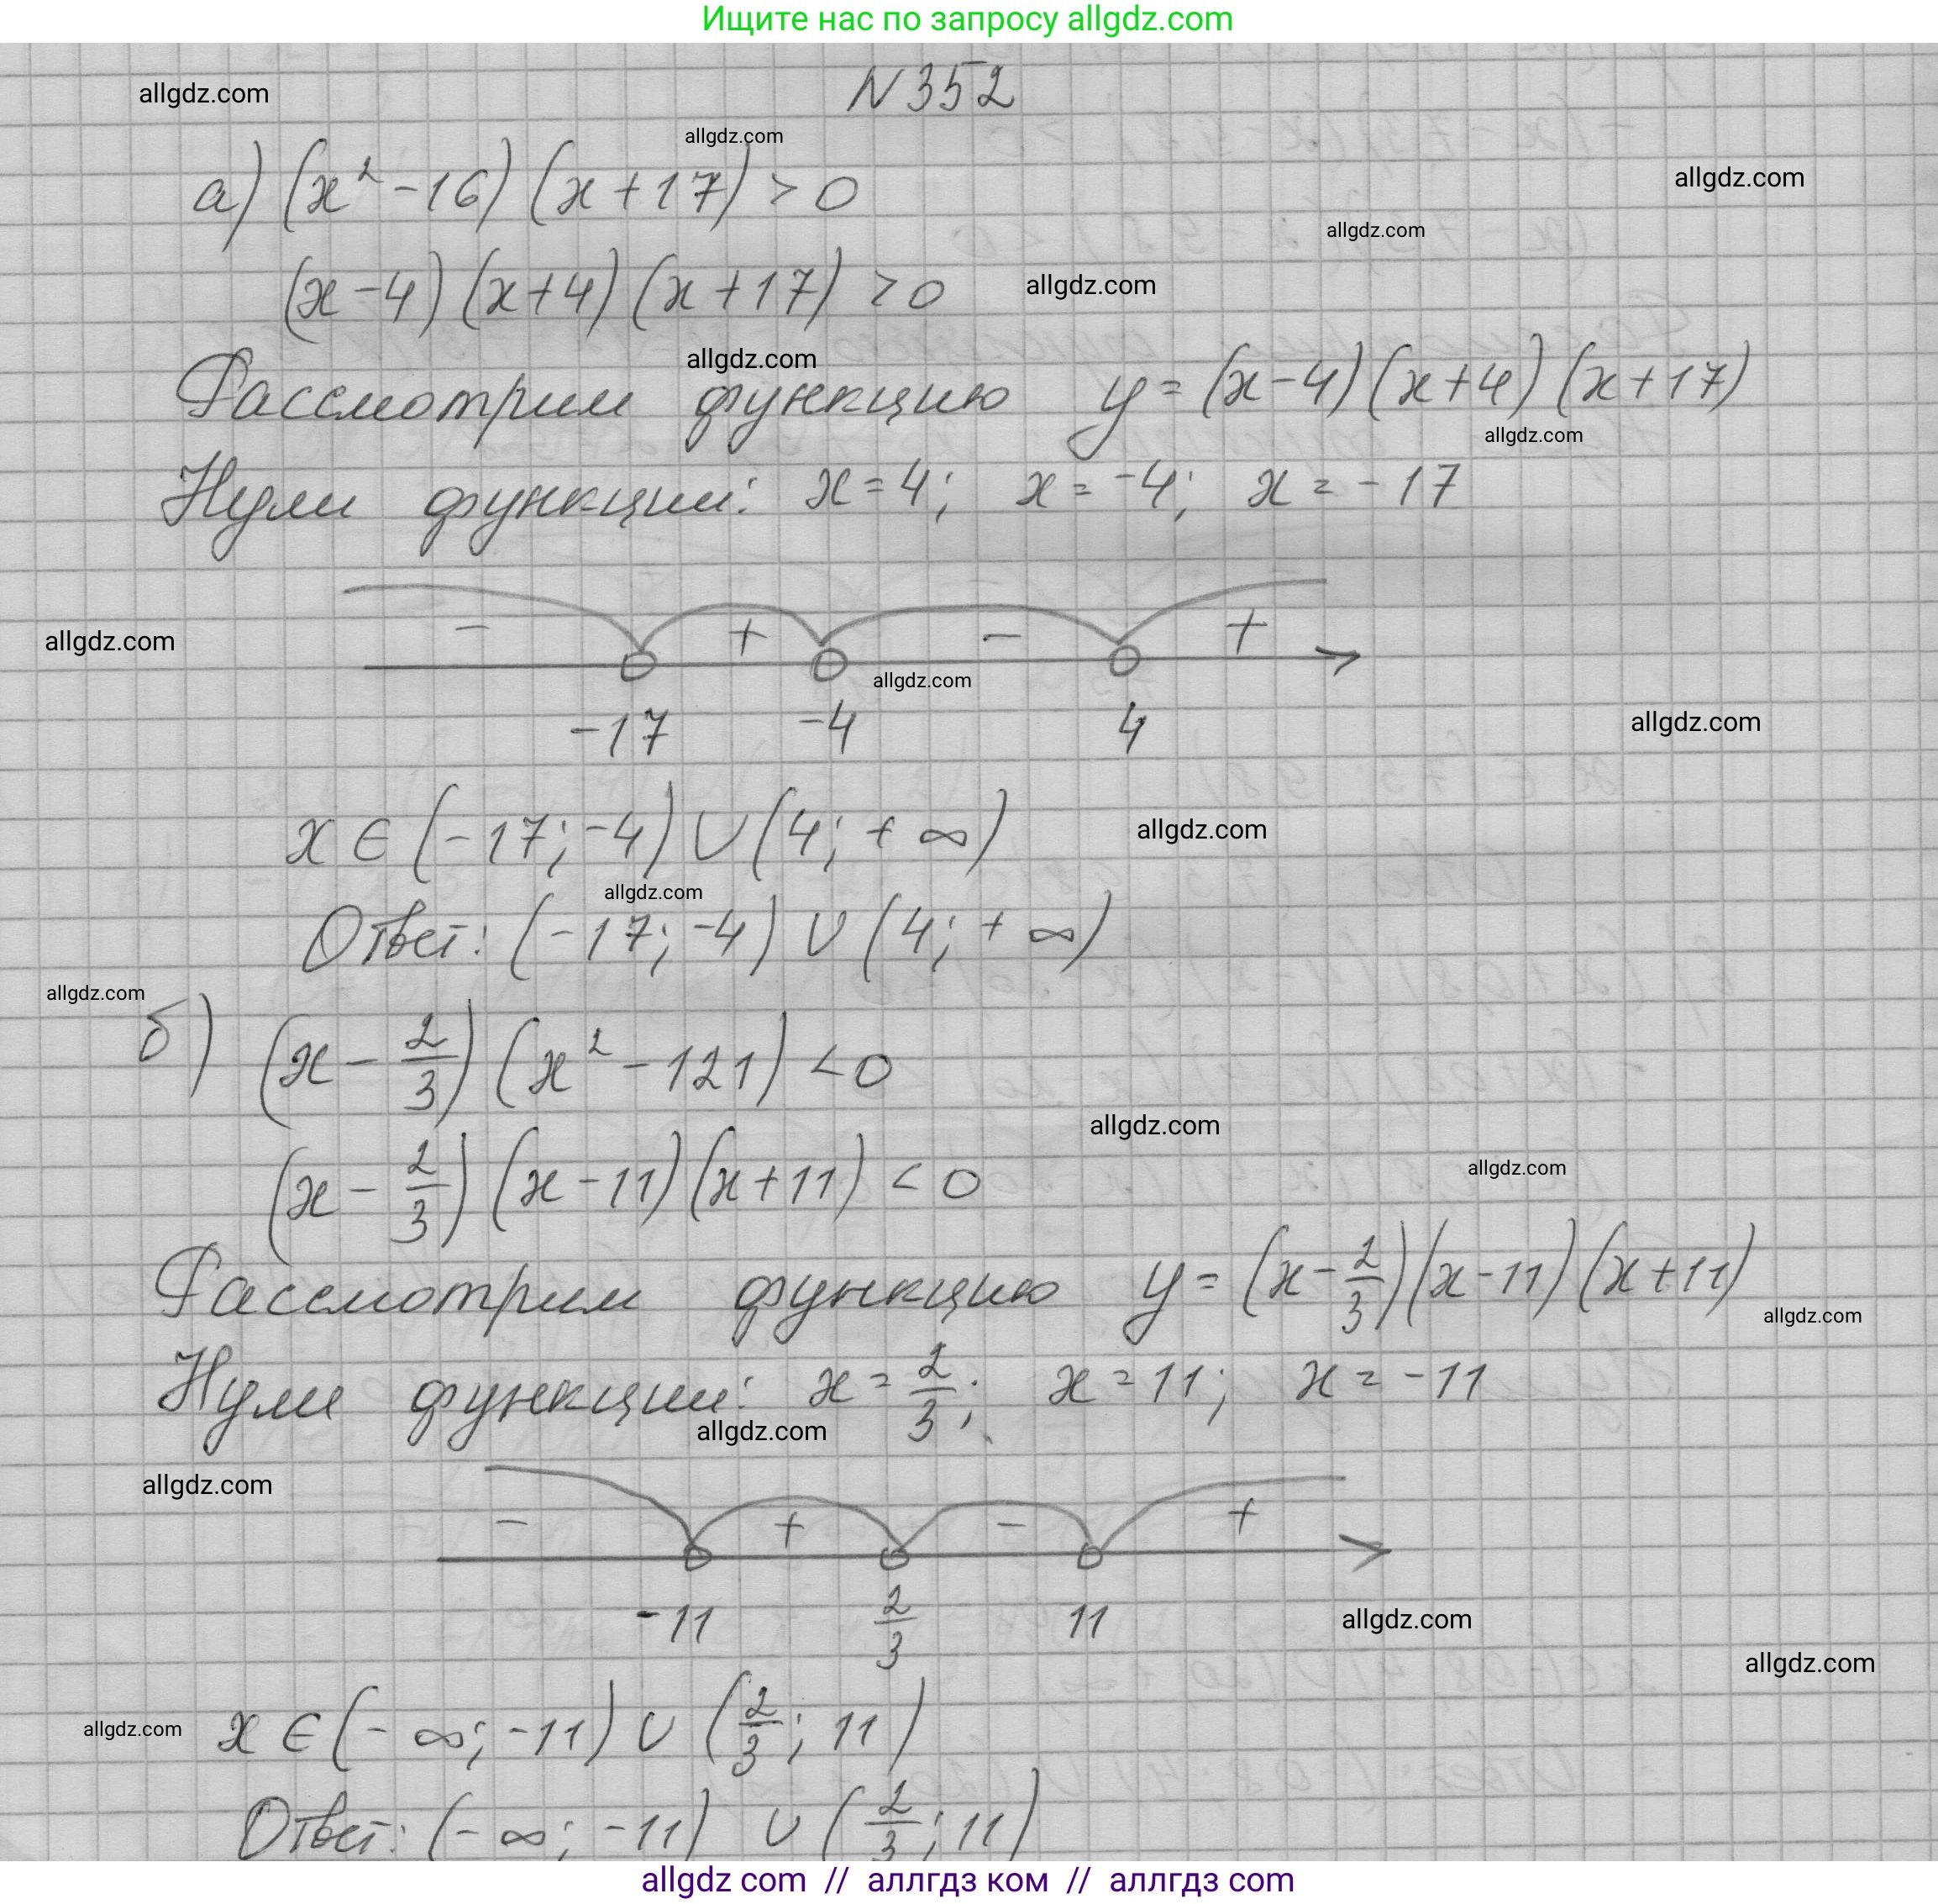 Ищите нас по запросу allgdz.com
allgdz.com
N 352
allgdz.com
а) (x² - 16) (x + 17) > 0
allgdz.com
allgdz.com
(x - 4) (x + 4) (x + 17) > 0
allgdz.com
allgdz.com
Рассмотрим функцию y = (x - 4) (x + 4) (x + 17)
allgdz.com
Нули функции: x = 4; x = -4; x = -17
- + - +
allgdz.com
allgdz.com
-17 -4 4
allgdz.com
x ∈ (-17; -4) ∪ (4; + ∞)
allgdz.com
allgdz.com
Ответ: (-17; -4) ∪ (4; + ∞)
allgdz.com
б) (x - 2/3) (x² - 121) < 0
allgdz.com
allgdz.com
(x - 2/3) (x - 11) (x + 11) < 0
Рассмотрим функцию y = (x - 2/3) (x - 11) (x + 11)
allgdz.com
Нули функции: x = 2/3; x = 11; x = -11
allgdz.com
allgdz.com
- + - +
-11 2/3 11
allgdz.com
allgdz.com
allgdz.com
x ∈ (- ∞; -11) ∪ (2/3; 11)
Ответ: (- ∞; -11) ∪ (2/3; 11)
allgdz com // аллгдз ком // аллгдз com